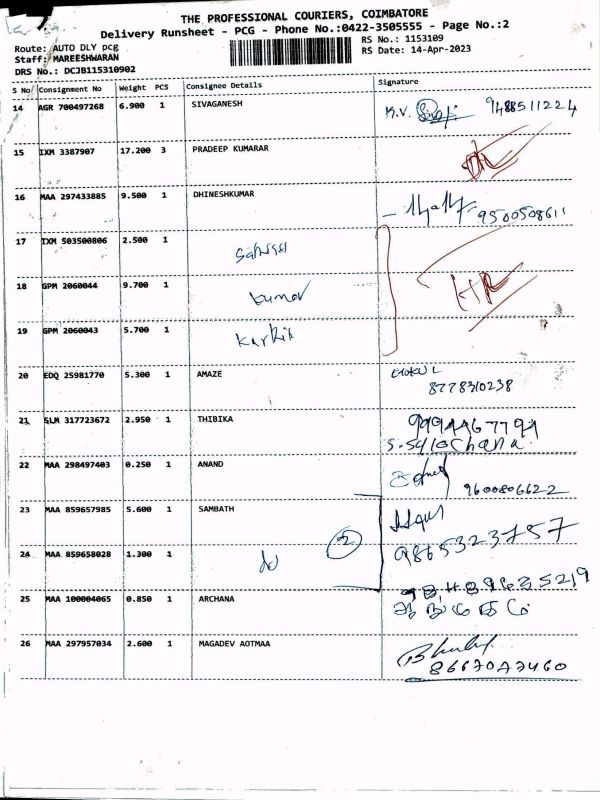 THE PROFESSIONAL COURIERS, COIMBATORE
Delivery Runsheet - PCG - Phone No.:0422-3505555 - Page No.:2
Route: AUTO DLY pcg
RS No.: 1153109
Staff: MAREESHWARAN
RS Date: 14-Apr-2023
DRS No.: DCJB115310902
S No Consignment No Weight PCS Consignee Details Signature
14 AGR 700497268 6.900 1 SIVAGANESH K.V. 9488511224
15 IXM 3387907 17.200 3 PRADEEP KUMARAR
16 MAA 297433885 9.500 1 DHINESHKUMAR 9500508611
17 IXM 503500806 2.500 1
18 GPM 2060044 9.700 1 kumar
19 GPM 2060043 5.700 1 karthik
20 EDQ 25981770 5.300 1 AMAZE GOKUL
8778310238
21 SLM 317723672 2.950 1 THIBIKA
S.Sylochana.
22 MAA 298497403 0.250 1 ANAND
9600806622
23 MAA 859657985 5.600 1 SAMBATH
2 9865323757
24 MAA 859658028 1.300 1
25 MAA 100004065 0.850 1 ARCHANA
26 MAA 297957034 2.600 1 MAGADEV AOTMAA